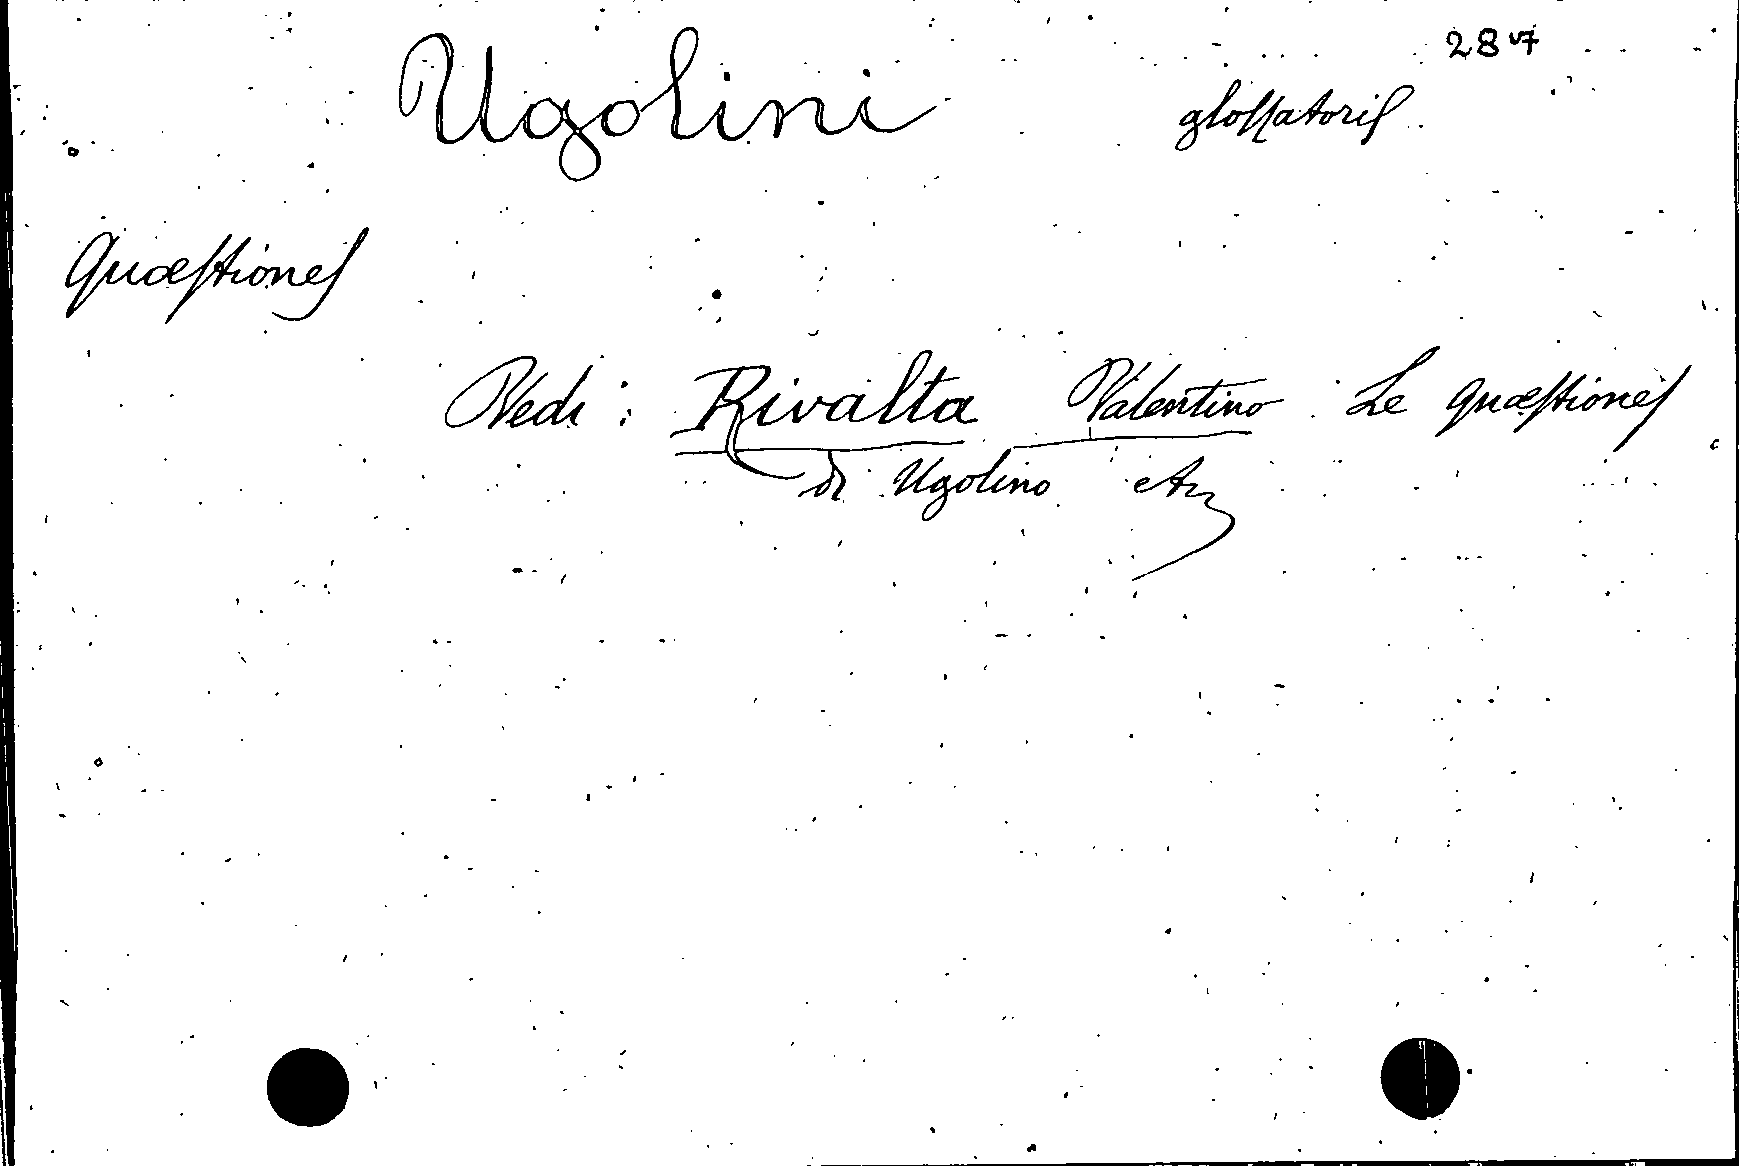 2847
Ugolini gloſſatoriſ
Quæſtioneſ
Vedi: Rivalta Valentino Le quæſtioneſ
di Ugolino etc